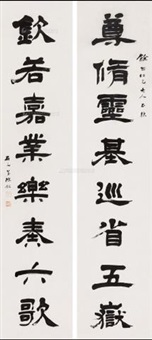 尊脩靈基巡省五嶽
欽若嘉業樂奏六歌